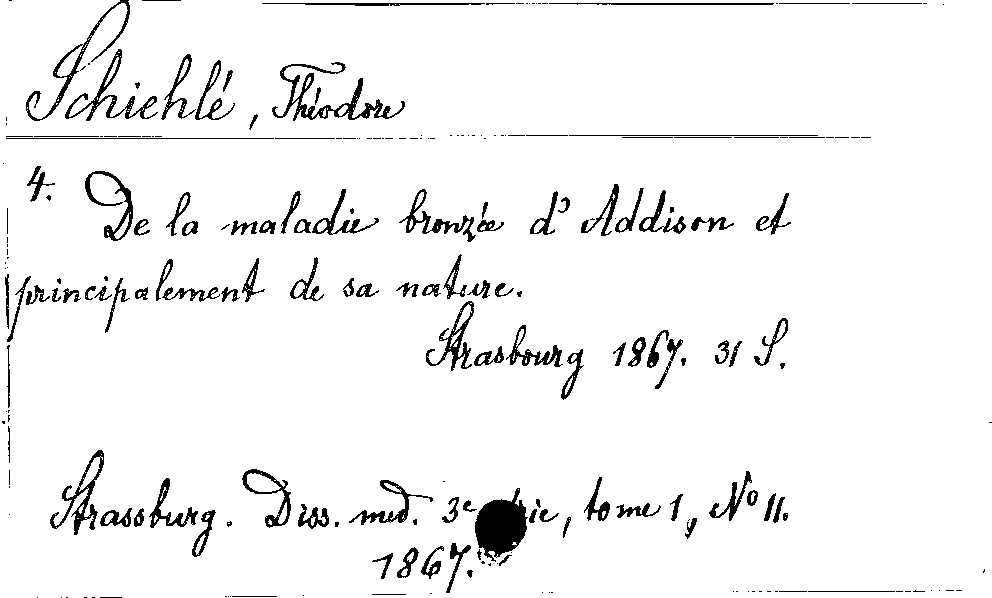 Schiehlé, Théodore
4. De la maladie bronzée d'Addison et
principalement de sa nature.
Strasbourg 1867. 31 S.
Strassburg. Diss. med. 3e , tome 1, No 11.
1867.